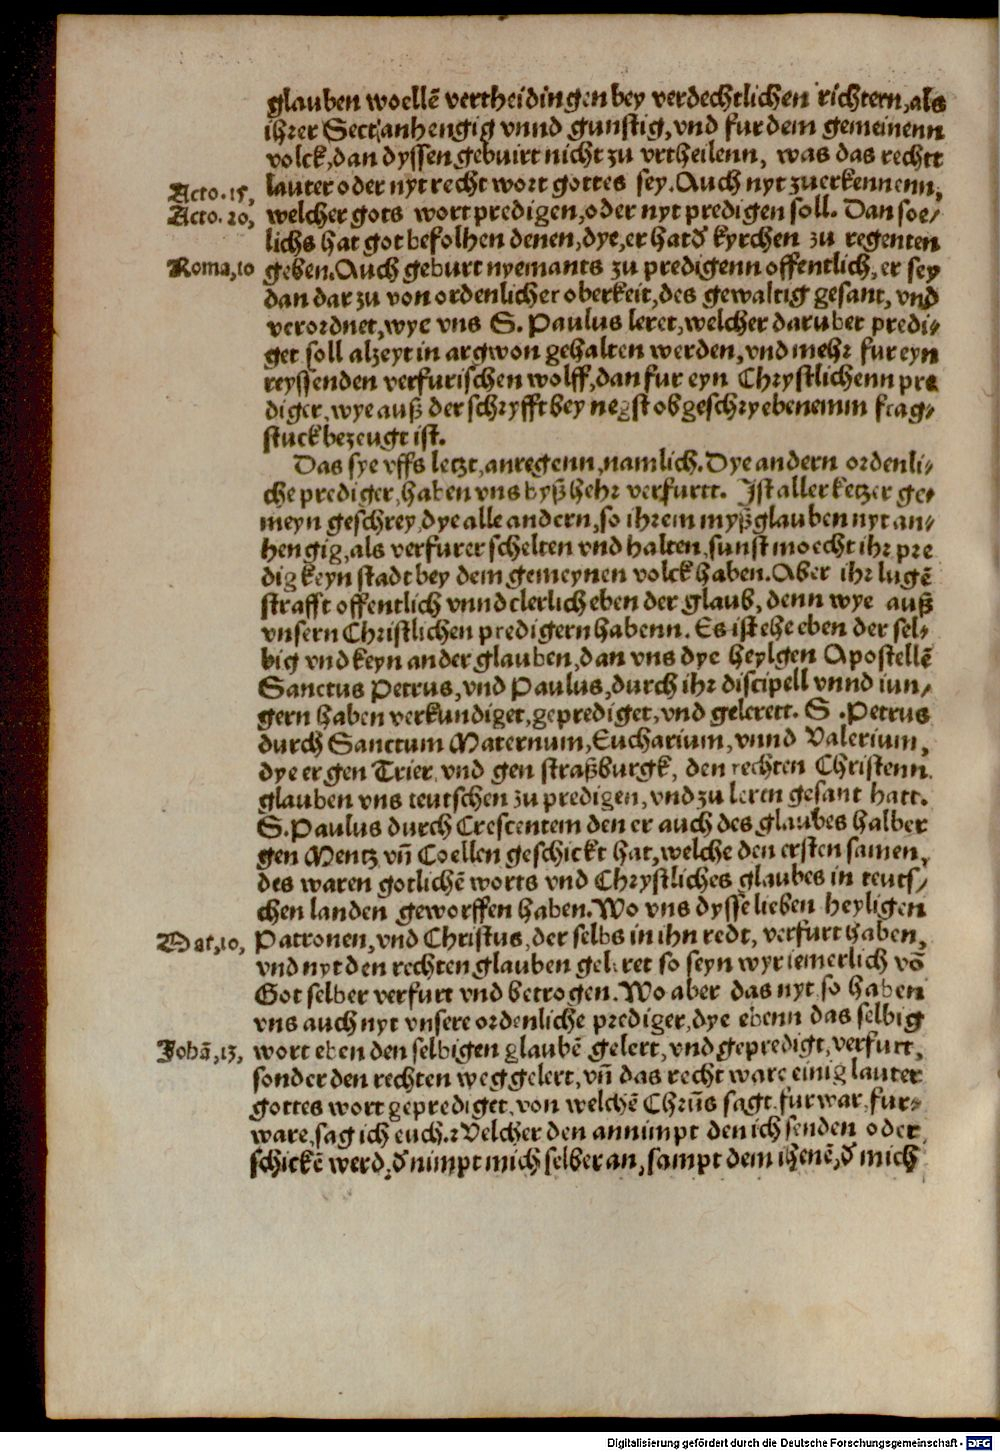 glauben woellē vertheidingen bey verdechtlichen richtern, als
ihrer Sect anhengig vnnd gunstig, vnd fur dem gemeinenn
volck, dan dyssen gebuirt nicht zu vrtheilenn, was das rechtt
Acto. 15, lauter oder nyt recht wort gottes sey. Auch nyt zuerkennenn,
Acto. 20, welcher gots wort predigen, oder nyt predigen soll. Dan soe/
lichs hat got befolhen denen, dye, er hat ð kyrchen zu regenten
Roma, 10 geben. Auch geburt nyemants zu predigenn offentlich, er sey
dan dar zu von ordenlicher oberkeit, des gewaltig gesant, vnd
verordnet, wye vns S. Paulus leret, welcher daruber predi/
get soll alzeyt in argwon gehalten werden, vnd mehr fur eyn
reyssenden verfurischen wolff, dan fur eyn Chrystlichenn pre
diger, wye auß der schryfft bey negst obgeschryebenemm frag/
stuck bezeugt ist.
Das sye vffs letzt, anregenn, namlich. Dye andern ordenli/
che prediger, haben vns byß hehr verfurtt. Ist aller ketzer ge/
meyn geschrey, dye alle andern, so ihrem myßglauben nyt an/
hengig, als verfurer schelten vnd halten, sunst moecht ihr pre
dig keyn stadt bey dem gemeynen volck haben. Aber ihr lugē
strafft offentlich vnnd clerlich eben der glaub, denn wye auß
vnsern Christlichen predigern habenn. Es ist ehe eben der sel/
big vnd keyn ander glauben, dan vns dye heylgen Apostellē
Sanctus Petrus, vnd Paulus, durch ihr discipell vnnd iun/
gern haben verkundiget, geprediget, vnd gelerett. S. Petrus
durch Sanctum Maternum, Eucharium, vnnd Valerium,
dye er gen Trier vnd gen straßburgk, den rechten Christenn
glauben vns teutschen zu predigen, vnd zu leren gesant hatt.
S. Paulus durch Crescentem den er auch des glaubes halber
gen Mentz vn̄ Coellen geschickt hat, welche den ersten samen,
des waren gotlichē worts vnd Chrystliches glaubes in teuts/
chen landen geworffen haben. Wo vns dysse lieben heyligen
Mat, 10, Patronen, vnd Christus, der selbs in ihn redt, verfurt haben,
vnd nyt den rechten glauben geleret so seyn wyr iemerlich vō
Got selber verfurt vnd betrogen. Wo aber das nyt, so haben
vns auch nyt vnsere ordenliche prediger, dye ebenn das selbig
Johā, 13, wort eben den selbigen glaubē gelert, vnd gepredigt, verfurt,
sonder den rechten weg gelert, vn̄ das recht ware einig lauter
gottes wort geprediget, von welchē Chrūs sagt, fur war, fur/
ware, sag ich euch. Welcher den annimpt den ich senden oder
schickē werd, ð nimpt mich selber an, sampt dem ihenē, ð mich
Digitalisierung gefördert durch die Deutsche Forschungsgemeinschaft - DFG